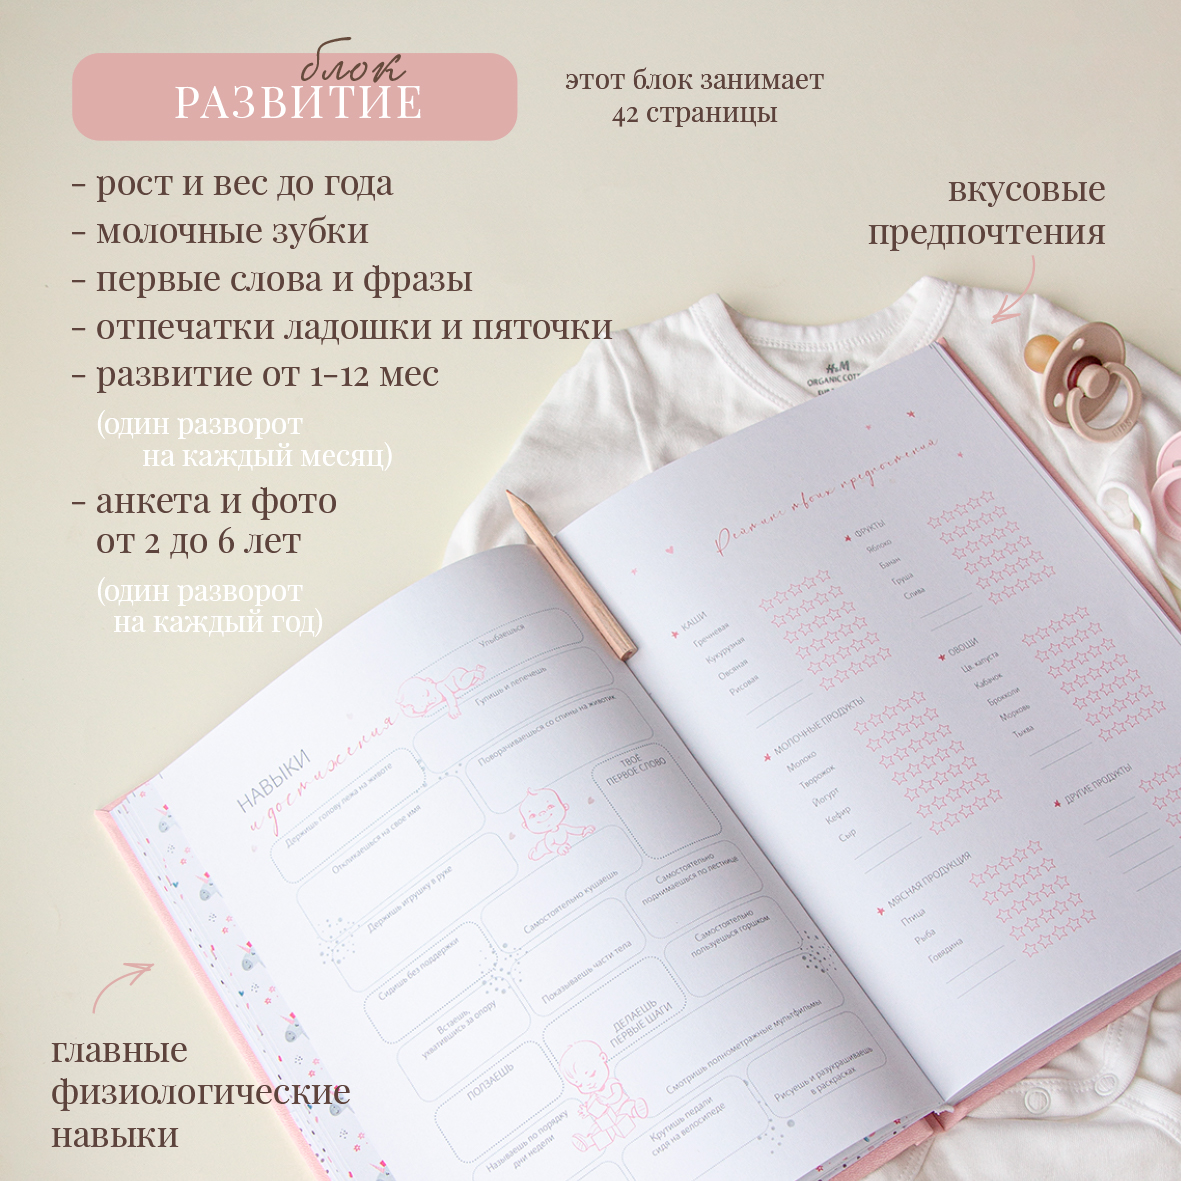 блок
РАЗВИТИЕ
этот блок занимает
42 страницы
- рост и вес до года
- молочные зубки
- первые слова и фразы
- отпечатки ладошки и пяточки
- развитие от 1-12 мес
(один разворот
на каждый месяц)
- анкета и фото
от 2 до 6 лет
(один разворот
на каждый год)
вкусовые
предпочтения
H&M
ORGANIC COTT
НАВЫКИ
и достижения
Улыбаешься
Гулишь и лепечешь
Поворачиваешься со спины на животик
Держишь голову лежа на животе
Откликаешься на свое имя
ТВОЁ
ПЕРВОЕ СЛОВО
Держишь игрушку в руке
Самостоятельно кушаешь
Самостоятельно
поднимаешься по лестнице
Сидишь без поддержки
Показываешь части тела
Самостоятельно
пользуешься горшком
Встаешь,
ухватившись за опору
ДЕЛАЕШЬ
ПЕРВЫЕ ШАГИ
ПОЛЗАЕШЬ
Смотришь полнометражные мультфильмы
Называешь по порядку
дни недели
Крутишь педали
сидя на велосипеде
Рисуешь и разукрашиваешь
в раскрасках
Рейтинг твоих предпочтений
КАШИ
Гречневая
Кукурузная
Овсяная
Рисовая
ФРУКТЫ
Яблоко
Банан
Груша
Слива
МОЛОЧНЫЕ ПРОДУКТЫ
Молоко
Творожок
Йогурт
Кефир
Сыр
ОВОЩИ
Цв. капуста
Кабачок
Брокколи
Морковь
Тыква
МЯСНАЯ ПРОДУКЦИЯ
Птица
Рыба
Говядина
ДРУГИЕ ПРОДУКТЫ
главные
физиологические
навыки